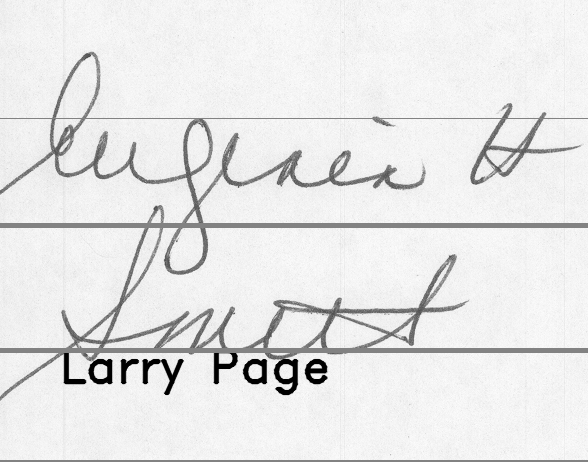 Eugenia H
Smith
Larry Page